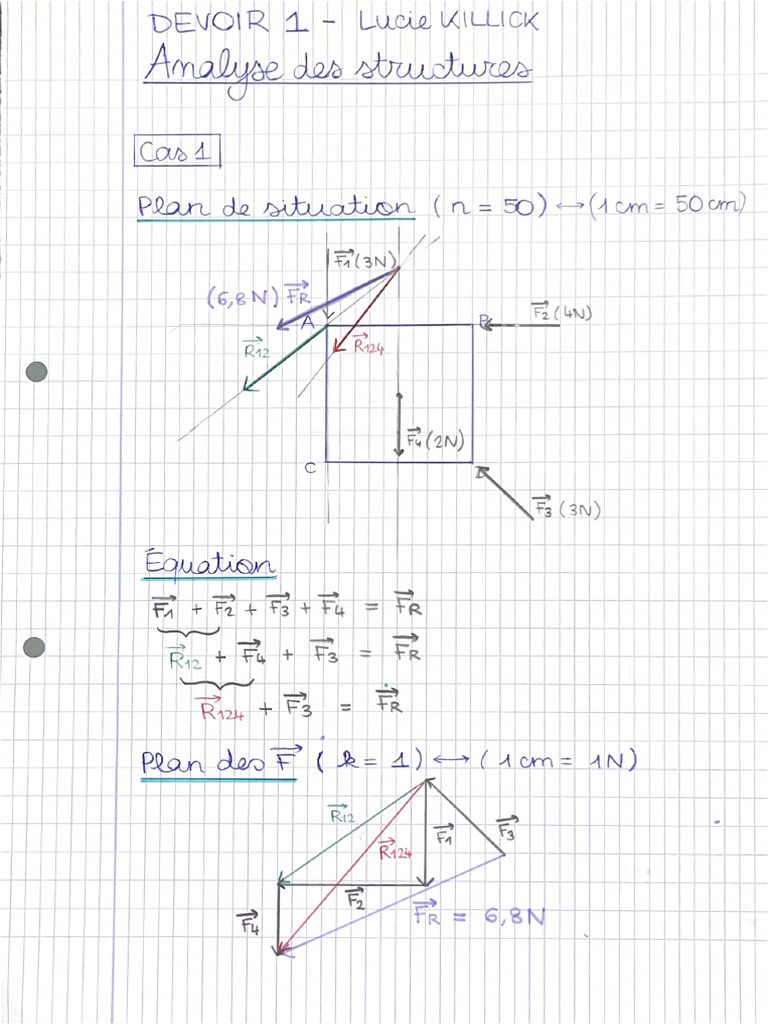 DEVOIR 1 - Lucie KILLICK
Analyse des structures
Cas 1
Plan de situation (n = 50) ↔ (1 cm = 50 cm)
F1 (3N)
(6,8 N) FR
F2 (4N)
A
B
R12
R124
F4 (2N)
C
F3 (3N)
Équation
F1 + F2 + F3 + F4 = FR
R12 + F4 + F3 = FR
R124 + F3 = FR
Plan des F ( k = 1) ↔ ( 1 cm = 1N)
R12
F1
F3
R124
F2
FR = 6,8 N
F4